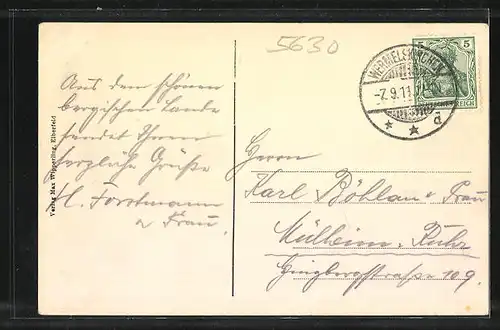 5630
WERMELSKIRCHEN
-7.9.11
* * d
5 5
REICH
Aus dem schönen
bergischen Lande
sendet Ihnen
herzliche Grüße
H. Forstmann
u Frau.
Verlag Max Wipperling, Elberfeld
Herrn
Karl Böhlau u Frau
Mülheim-Ruhr
109.